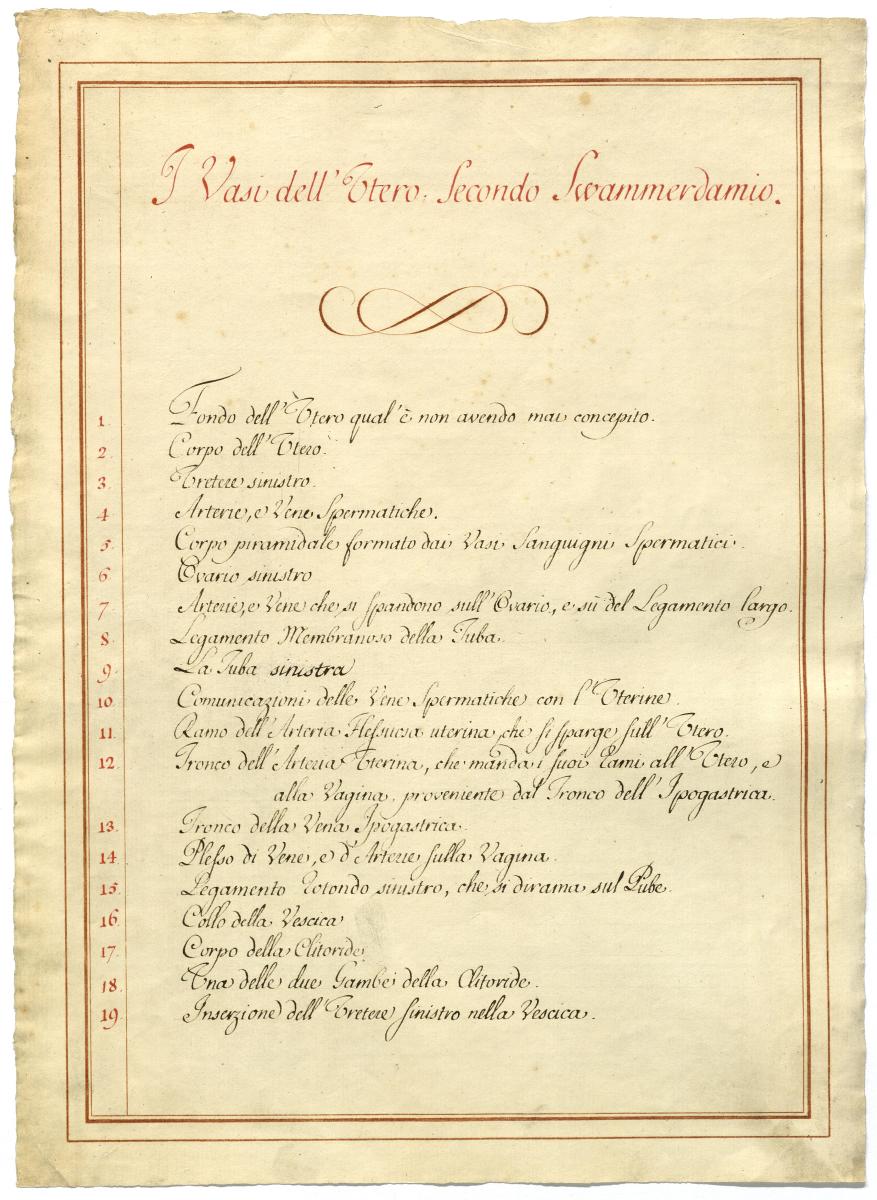 I Vasi dell'Utero. Secondo Swammerdamio.
1. Fondo dell'Utero qual'è non avendo mai concepito.
2. Corpo dell'Utero.
3. Uretere sinistro.
4. Arterie, e Vene Spermatiche.
5. Corpo piramidale formato dai Vasi Sanguigni Spermatici.
6. Ovario sinistro
7. Arterie, e Vene che si spandono sull'Ovario, e sù del Legamento largo.
8. Legamento Membranoso della Tuba.
9. La Tuba sinistra
10. Comunicazioni delle Vene Spermatiche con l'Uterine.
11. Ramo dell'Arteria Flessuosa uterina che si sparge sull'Utero.
12. Tronco dell'Arteria Uterina, che manda i suoi Rami all'Utero, e
alla Vagina, proveniente dal Tronco dell'Ipogastrica.
13. Tronco della Vena Ipogastrica.
14. Plesso di Vene, e d'Arterie sulla Vagina.
15. Legamento Rotondo sinistro, che si dirama sul Pube.
16. Collo della Vescica
17. Corpo della Clitoride
18. Una delle due Gambe della Clitoride.
19. Inserzione dell'Uretere sinistro nella Vescica.